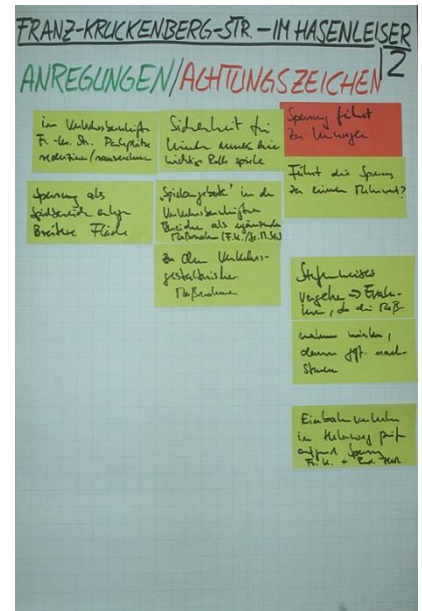 FRANZ-KRUCKENBERG-STR. – IM HASENLEISER
2
ANREGUNGEN/ACHTUNGSZEICHEN
Fr.-Kr. Str. Parkplätze
Sperrung als
Spielbereich
Breitere Fläche
Sicherheit für
Kinder muss
wichtig Rolle spiele
"Spielangebote" in den
Bereiche als ergänzende
Maßnahm (F.K./
zu den Verkehrs-
gestalterischen
Maßnahmen
Sperrung führt
zu Umwegen
Führt die Sperrung
zu einem Mehrwert?
Stufenweises
Vorgehen => Evalu-
ieren, ob die Maß-
nahmen wirken,
dann ggf. nach-
steuern
Einbahnverkehr
im prüf
aufgrund Sperrung
Fr. K. +